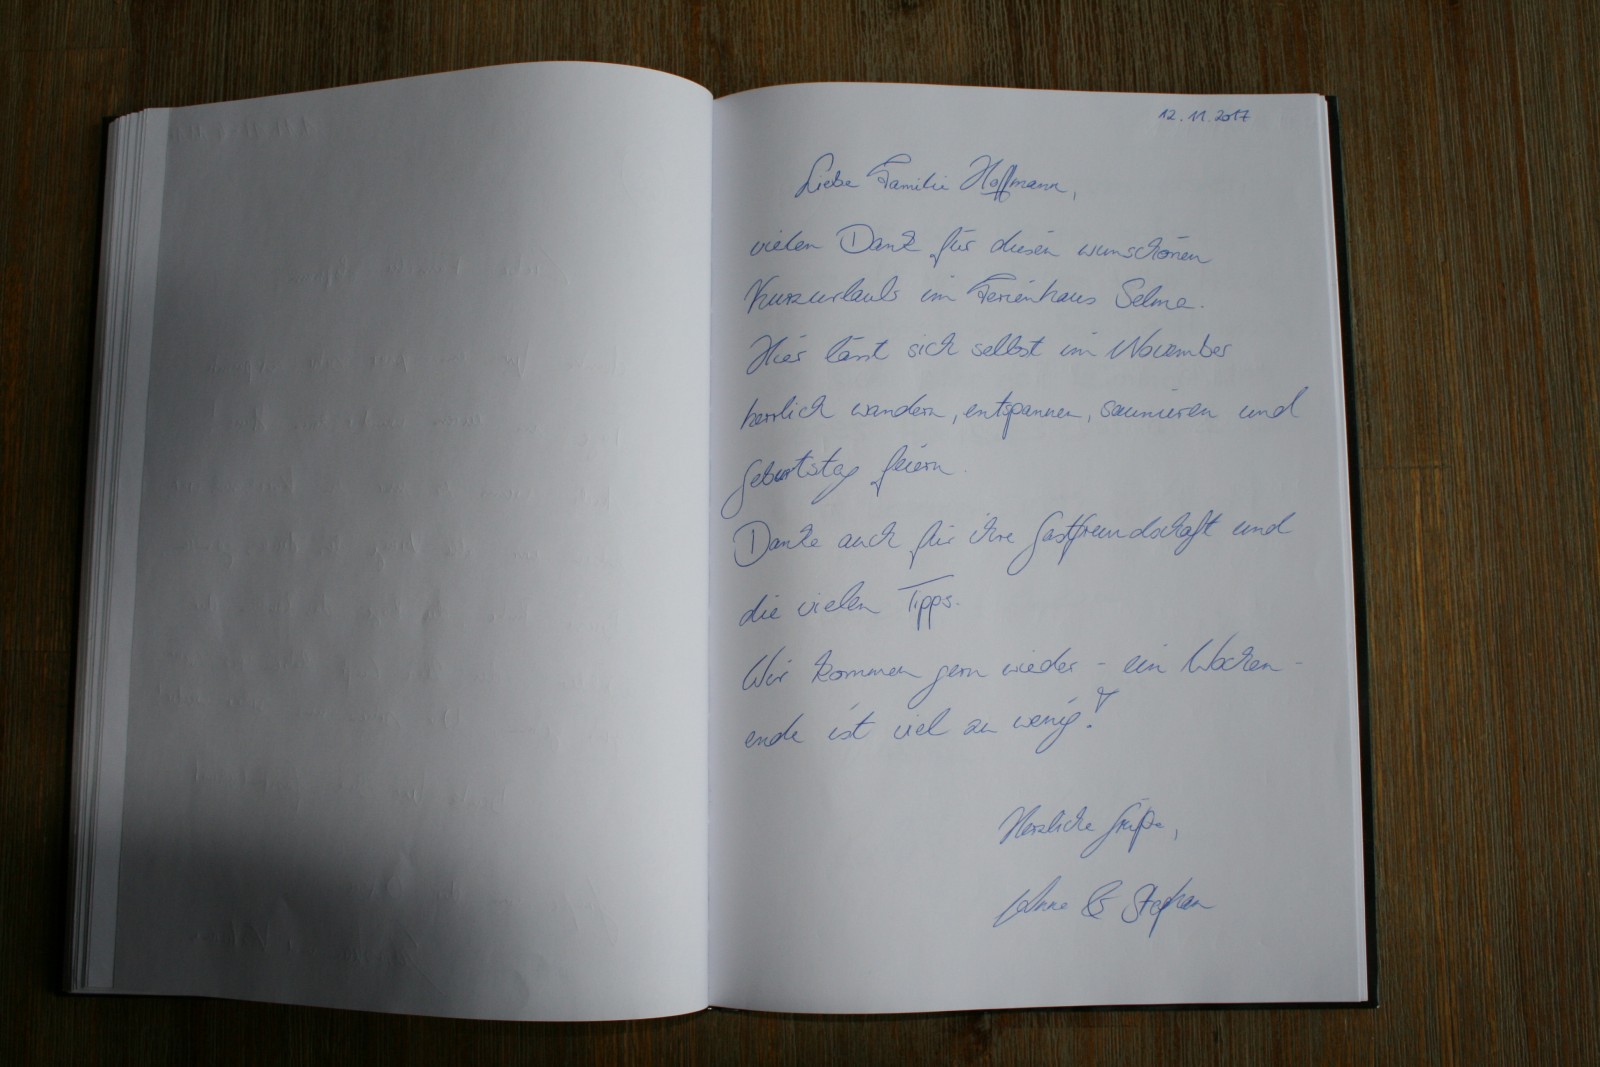 12.11.2017
Liebe Familie Hoffmann,
vielen Dank für diesen wunschönen
Kurzurlaub im Ferienhaus Selma.
Hier lässt sich selbst im November
herrlich wandern, entspannen, saunieren und
Geburtstag feiern.
Danke auch für ihre Gastfreundschaft und
die vielen Tipps.
Wir kommen gern wieder - ein Wochen-
ende ist viel zu wenig!
Herzliche Grüße,
Anne & Stephan